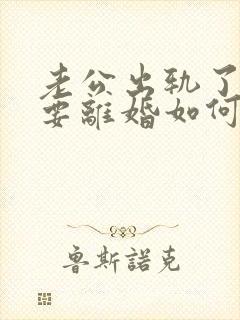 老公出轨了
要離婚如何
魯斯諾克